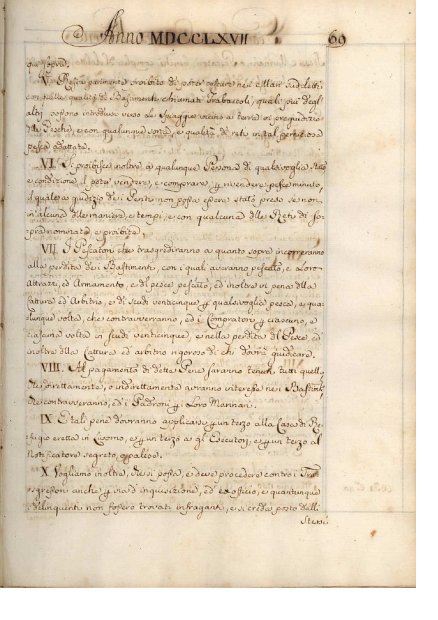 Anno MDCCLXVII 69
que sopra.
V. Resta parimente proibito di poter pescare nei Mari suddetti
con quelle qualità di Bastimenti chiamati Trabaccoli, quali più degl'
altri possono introdursi verso le Spiagge vicino a terra in pregiudizio
delle Pesche, e con qualunque sorte, e qualità di reti in tal
pesca adattate.
VI. Si proibisce inoltre a qualunque Persona di qualsivoglia Stato
e condizione il poter vendere, e comprare, rivendere pesce minuto,
il quale a giudizio dei Periti non possa essere stato preso se non
in alcuna delle maniere, e tempi, e con qualcuna delle Reti di so-
pra nominate, e proibite.
VII. I Pescatori che trasgrediranno a quanto sopra incorreranno
alla perdita dei Bastimenti, con i quali avranno pescato, e Loro
Attrazzi, ed Armamento, e del pesce pescato, ed inoltre in pena della
Cattura ed Arbitrio, e di Scudi venticinque qualsivoglia pesca, e qua-
lunque volta, che contravverranno, ed i Compratori ciascuno, e
ciascuna volta in Scudi venticinque, e nella perdita del Pesce, ed
inoltre della Cattura ed arbitrio rigoroso di chi dovrà giudicare.
VIII. Al pagamento di dette Pene saranno tenuti tutti quelli
che direttamente, o indirettamente avranno interesse nei Bastimenti
che contravveranno, ed i Padroni i Loro Marinari.
IX. E tali pene dovranno applicarsi un terzo alla Casa di Re-
fugio eretta in Livorno, e un terzo agli Esecutori, e un terzo al
Notificatore segreto, o palese.
X. Vogliamo inoltre, che si possa, e deva procedere contro i Tra-
sgressori anche via d'inquisizione, ed ex officio, e quantunque
i delinquenti non fossero trovati infraganti, e si creda posto dalli
Stessi